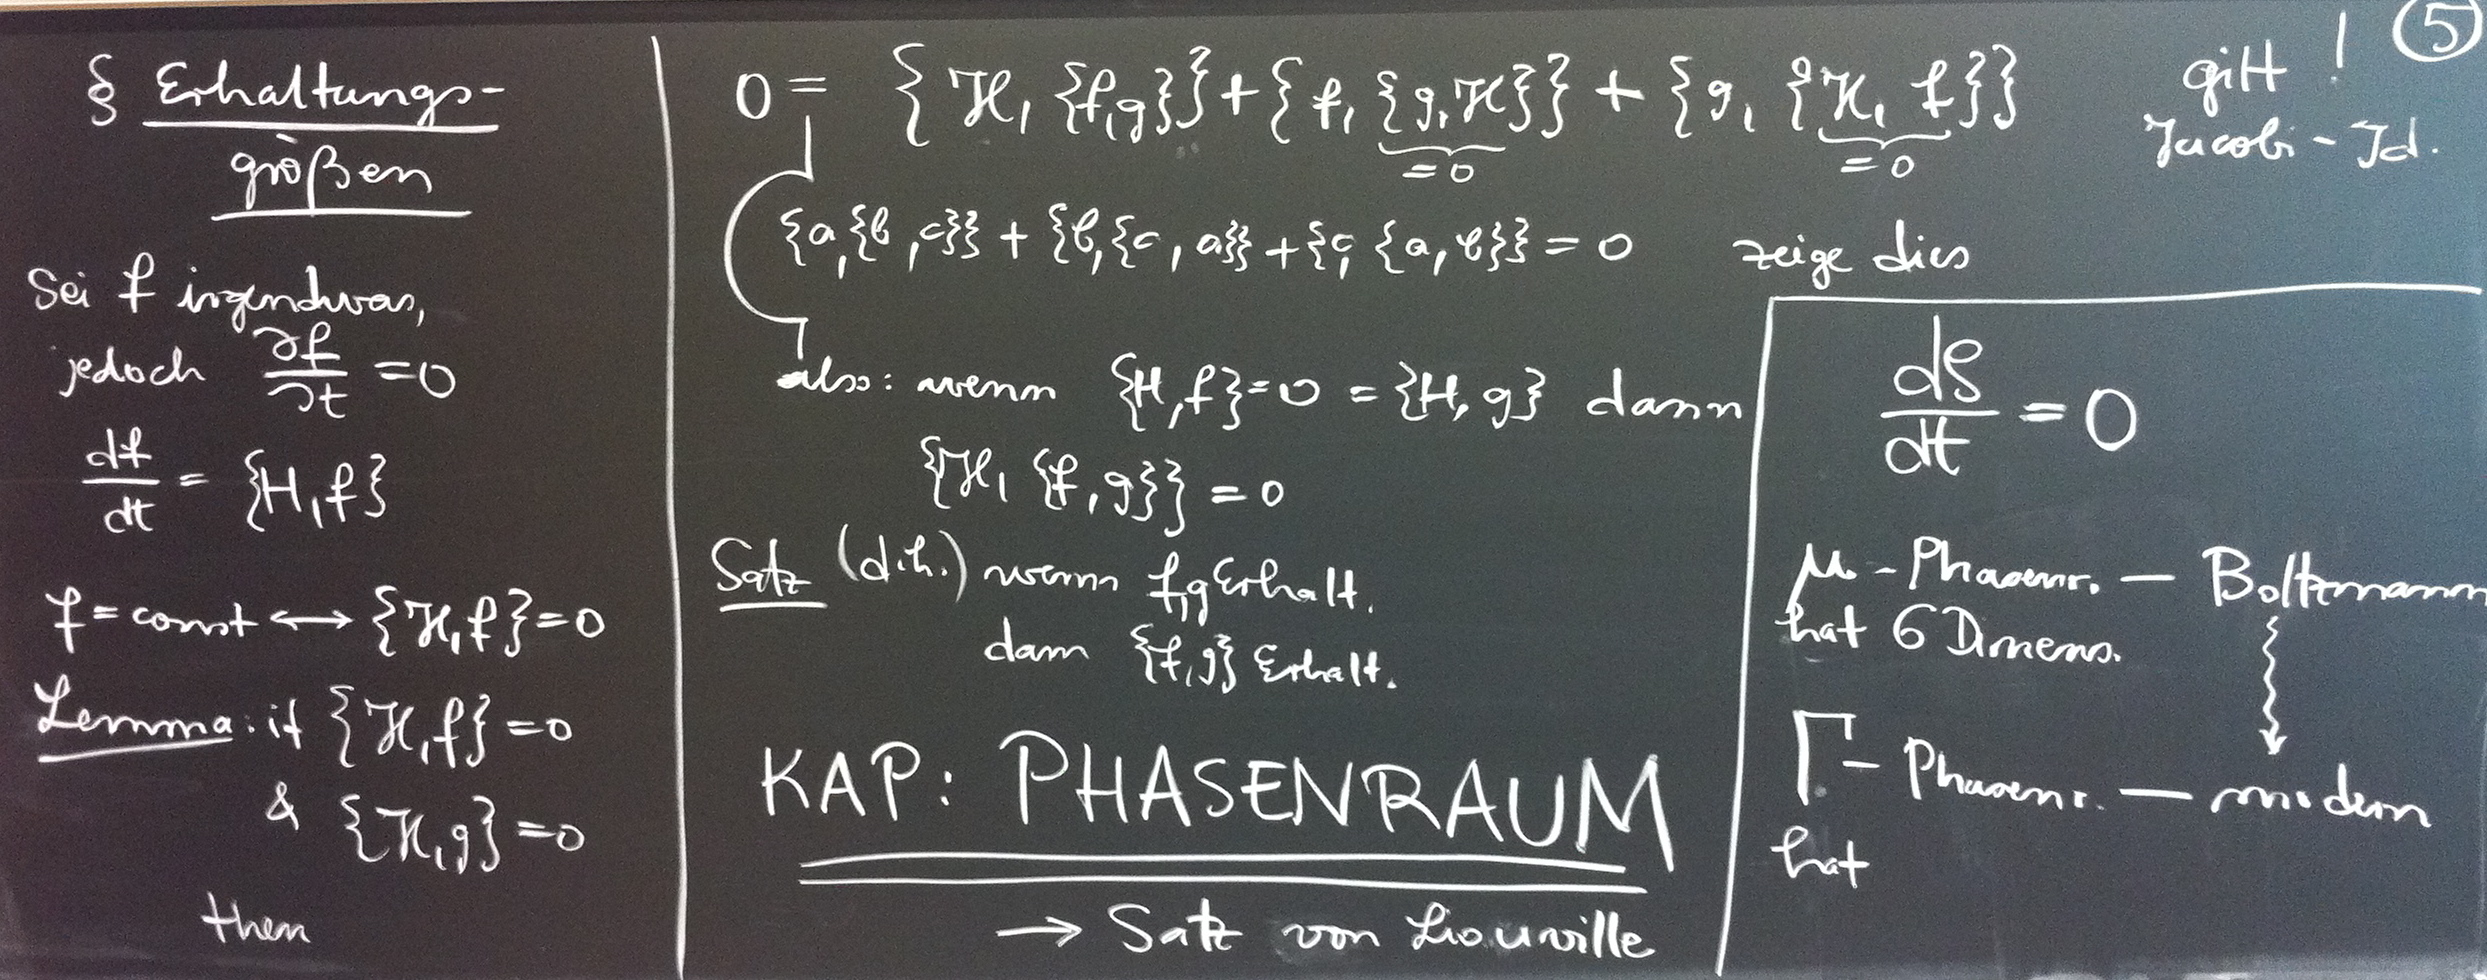 § Erhaltungs-
größen
Sei f irgendwas,
jedoch ∂f/∂t = 0
df/dt = {H, f}
f = const ↔ {ℋ, f} = 0
Lemma: if {ℋ, f} = 0
& {ℋ, g} = 0
then
0 = {ℋ, {f, g}} + {f, {g, ℋ}} + {g, {ℋ, f}}
= 0 = 0
{a, {b, c}} + {b, {c, a}} + {c, {a, b}} = 0 zeige dies
also: wenn {H, f} = 0 = {H, g} dann
{ℋ, {f, g}} = 0
Satz (d.h.) wenn f, g Erhalt.
dann {f, g} Erhalt.
KAP: PHASENRAUM
→ Satz von Liouville
gilt ! 5
Jacobi-Id.
dϱ/dt = 0
μ - Phasenr. — Boltzmann
hat 6 Dimens.
Γ - Phasenr. — modern
hat